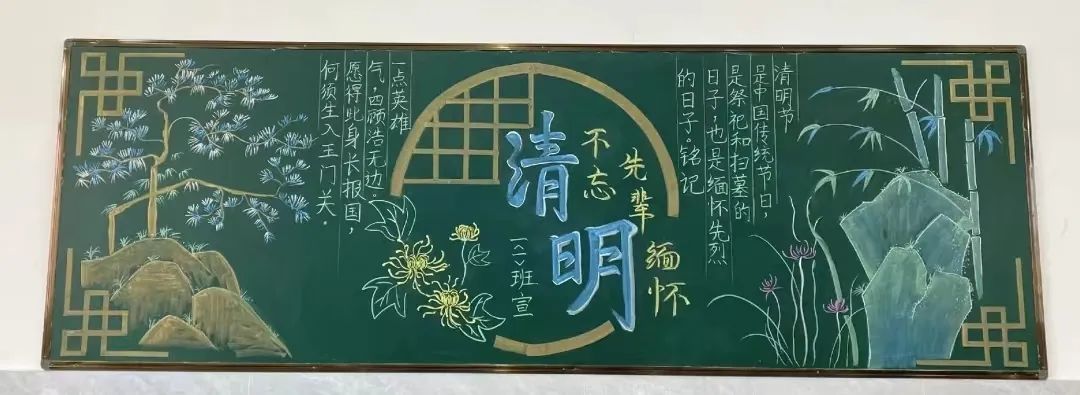 清明节
是中国传统节日，
是祭祀和扫墓的
日子，也是缅怀先烈
的日子。铭记
清明
不忘
先辈
缅怀
一〈二〉班宣
一点英雄
气，四顾浩无边。
愿得此身长报国，
何须生入王门关。